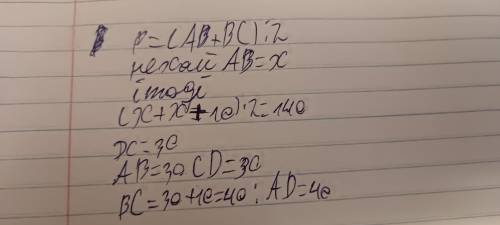 P=(AB+BC):2
нехай AB=x
тоді
(x+x+10)·2=140
DC=30
AB=30 CD=30
BC=30+10=40; AD=40